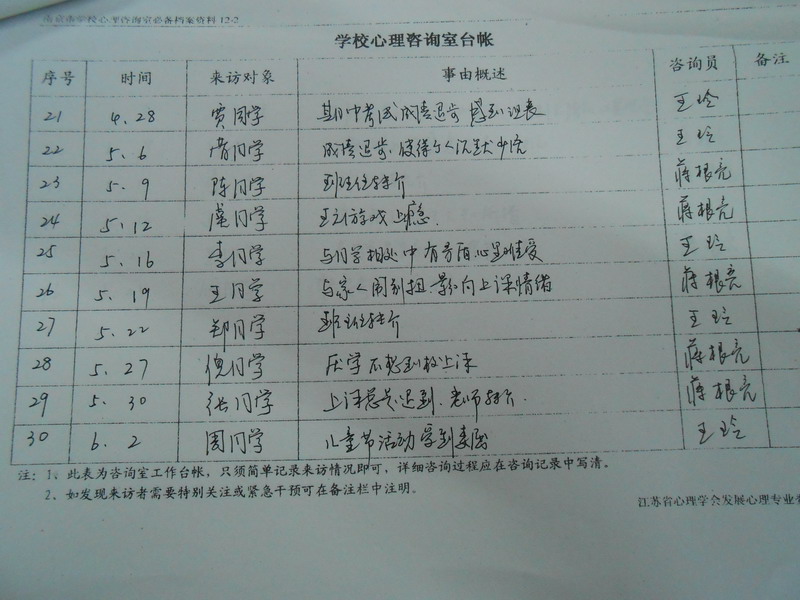 南京市学校心理咨询室必备档案资料 12-2
学校心理咨询室台帐
序号 时间 来访对象 事由概述 咨询员 备注
21 4.28 贾同学 期中考试成绩退步 感到沮丧 王玲
22 5.6 同学 成绩退步 变得个人沉默少言 王玲
23 5.9 陈同学 班主任转介 蒋根亮
24 5.12 同学 玩游戏上瘾. 蒋根亮
25 5.16 李同学 与同学相处中有矛盾,心里难受 王玲
26 5.19 王同学 与家人闹别扭 影响上课情绪 蒋根亮
27 5.22 郑同学 班主任转介 王玲
28 5.27 倪同学 厌学 不想到校上课 蒋根亮
29 5.30 张同学 上课总是迟到.老师转介. 蒋根亮
30 6.2 周同学 儿童节活动受到委屈 王玲
注:1、此表为咨询室工作台帐,只须简单记录来访情况即可,详细咨询过程应在咨询记录中写清。
2、如发现来访者需要特别关注或紧急干预可在备注栏中注明。
江苏省心理学会发展心理专业